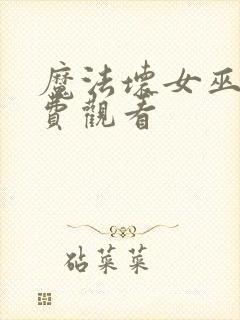 魔法壞女巫
費觀看
砧菜菜